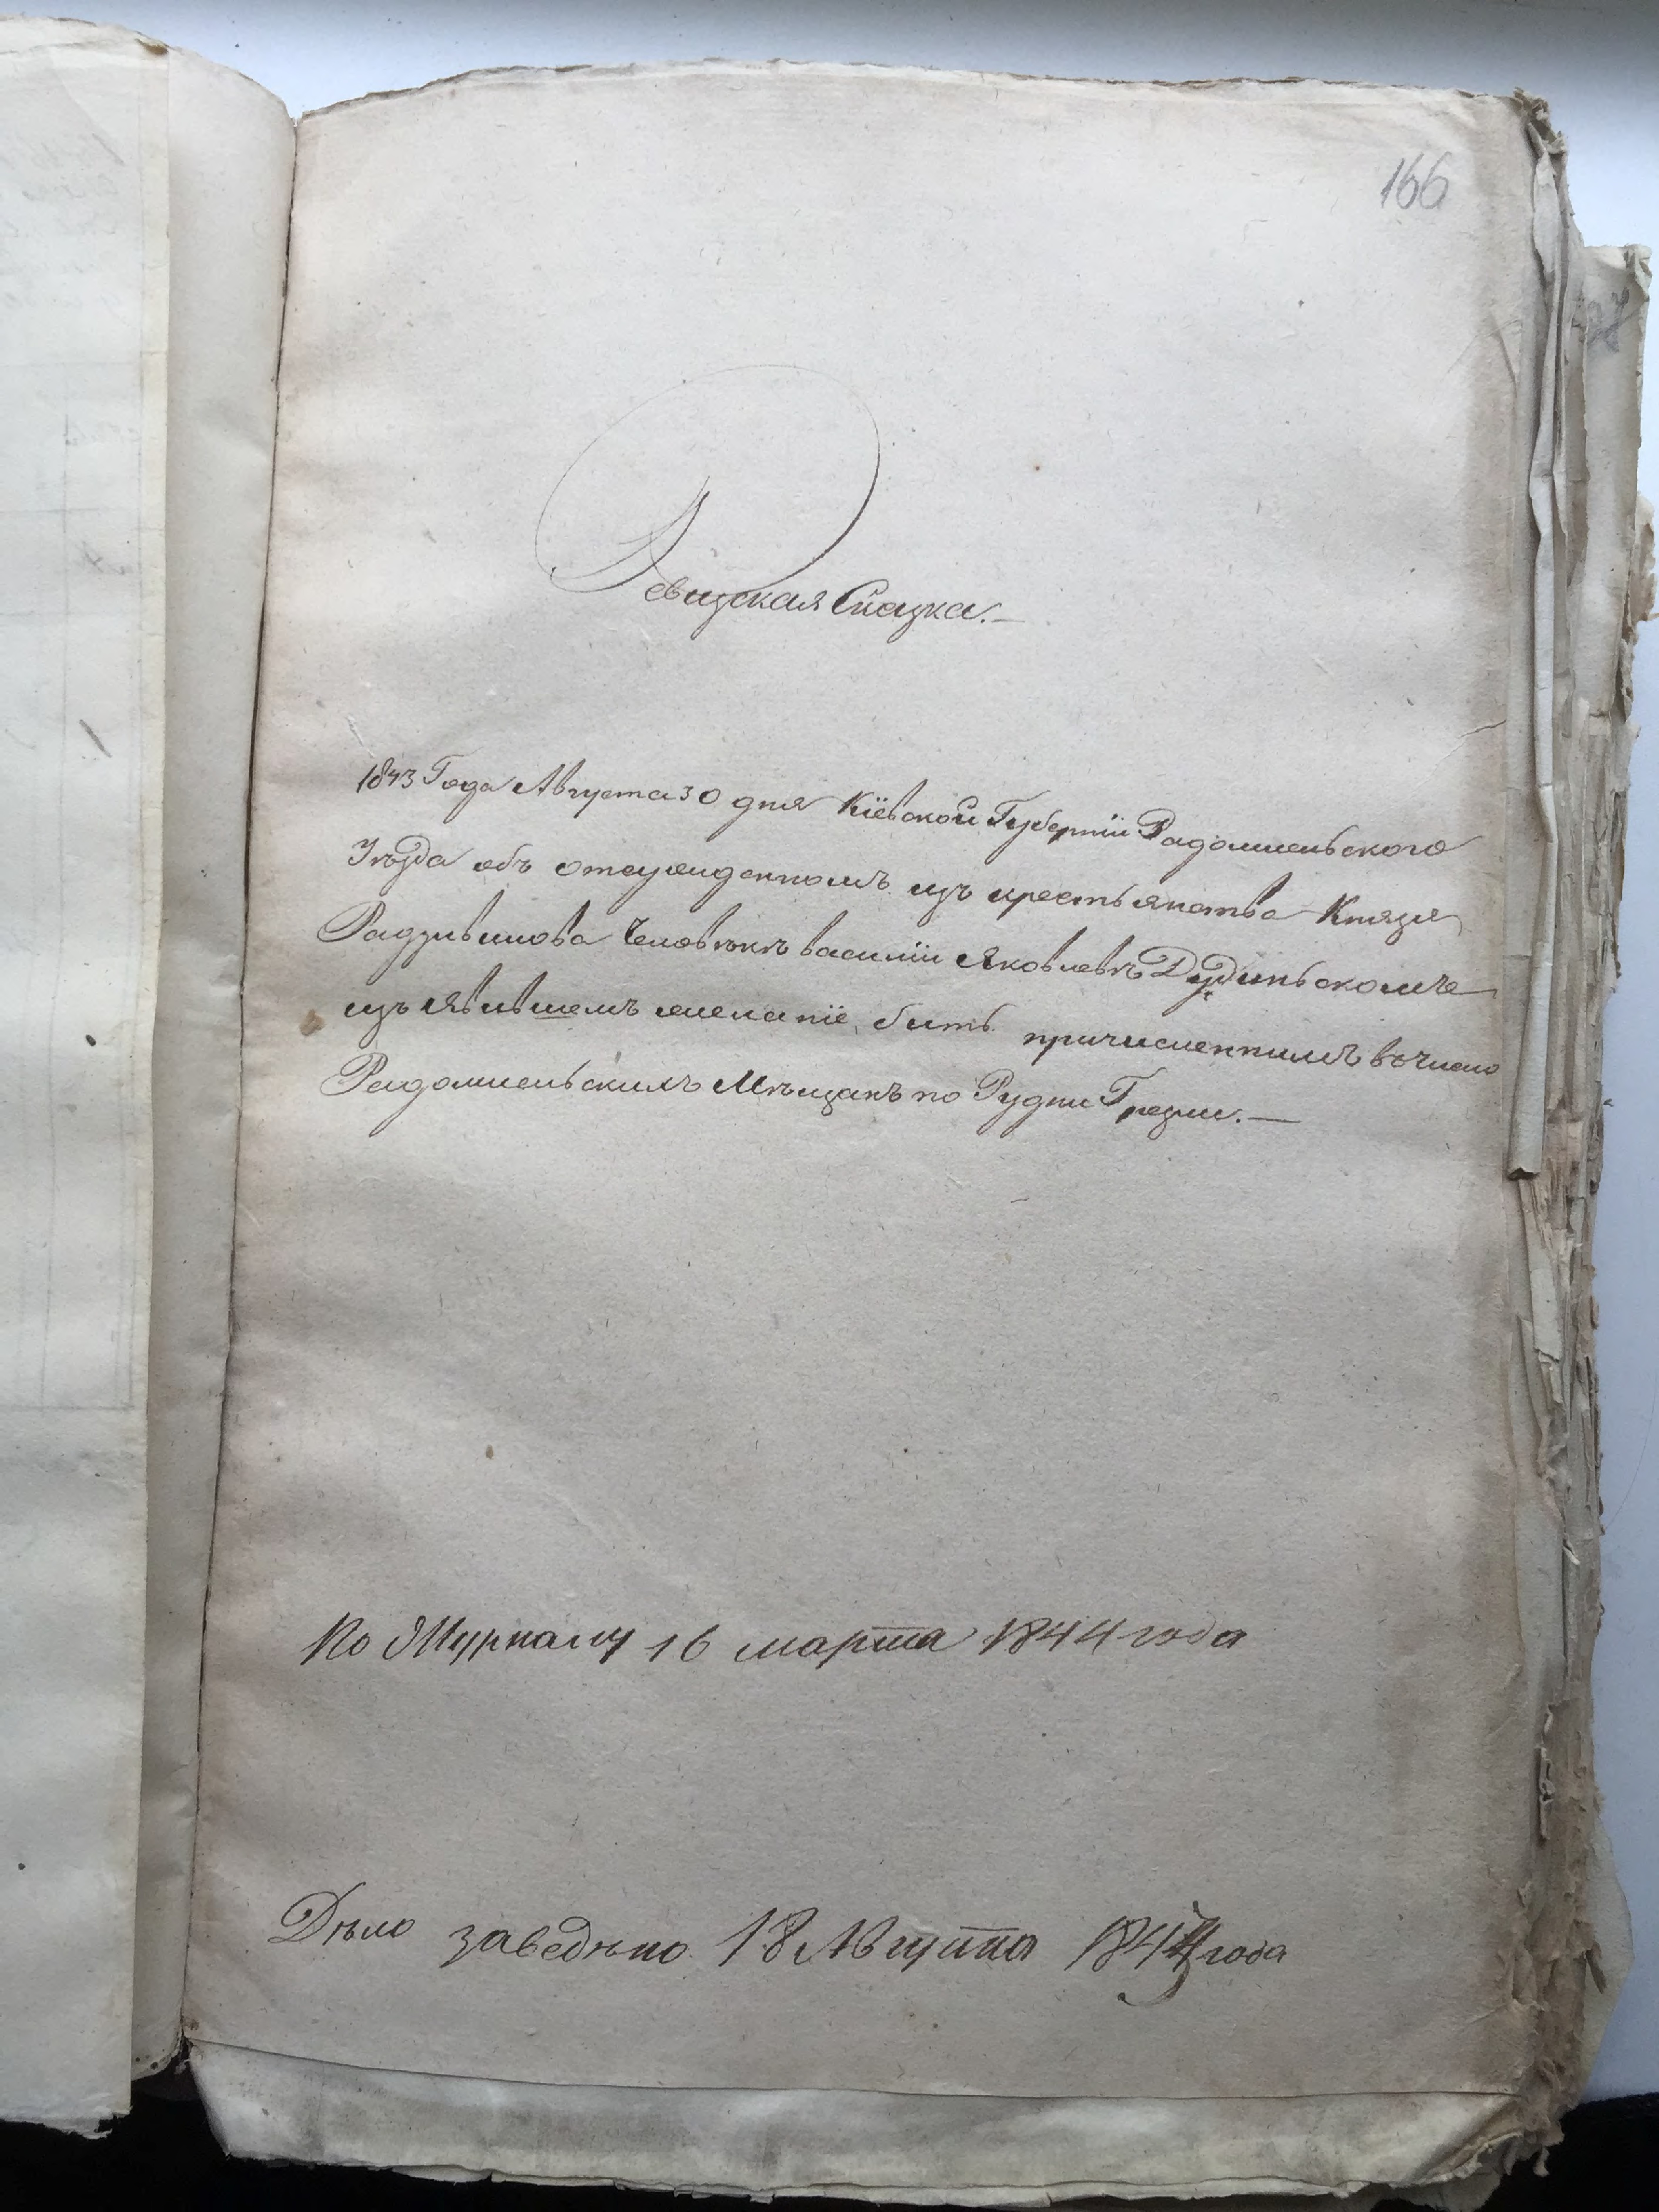 166
Ревизская Сказка.—
1843 Года Августа 30 дня Кіевской Губерніи Радомысльского
Уѣзда объ отсужденномъ изъ крестьянства Князя
Радзивилова Человѣкѣ василіи Яковлевѣ Дудиньскомъ
изъявившемъ желаніе быть причисленнымъ въ число
Радомысльскихъ Мѣщанъ по Рудни Грезли.—
По Журналу 16 марта 1844 года
Дѣло заведѣно 18 Августа года